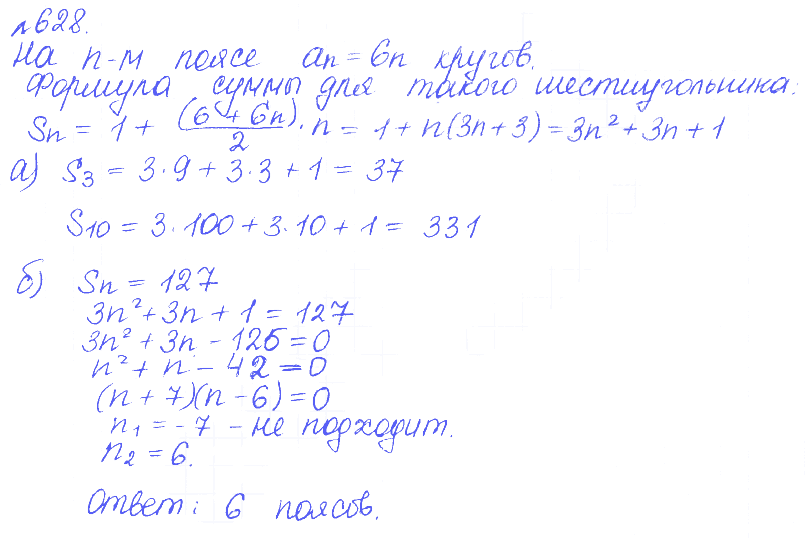 №628.
На n-м поясе an = 6n кругов.
Формула суммы для такого шестиугольника:
Sn = 1 + (6 + 6n)/2 · n = 1 + n(3n + 3) = 3n² + 3n + 1
а) S3 = 3·9 + 3·3 + 1 = 37
S10 = 3·100 + 3·10 + 1 = 331
б) Sn = 127
3n² + 3n + 1 = 127
3n² + 3n - 126 = 0
n² + n - 42 = 0
(n + 7)(n - 6) = 0
n1 = -7 - не подходит.
n2 = 6.
Ответ: 6 поясов.